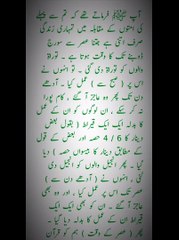 آپ ﷺ فرماتے تھے کہ تم سے پہلے
کی امتوں کے مقابلہ میں تمہاری زندگی
صرف اتنی ہے جتنا عصر سے سورج
ڈوبنے تک کا وقت ہوتا ہے ۔ توراۃ
والوں کو توراۃ دی گئی ۔ تو انہوں نے
اس پر ( صبح سے ) عمل کیا ۔ آدھے
دن تک پھر وہ عاجز آ گئے ، کام پورا
نہ کر سکے ، ان لوگوں کو ان کے عمل
کا بدلہ ایک ایک قیراط ( بقول بعض
دینار کا 4/6 حصہ اور بعض کے قول
کے مطابق دینار کا بیسواں حصہ ) دیا
گیا ۔ پھر انجیل والوں کو انجیل دی
گئی ، انہوں نے ( آدھے دن سے )
عصر تک اس پر عمل کیا ، اور وہ بھی
عاجز آ گئے ۔ ان کو بھی ایک ایک
قیراط ان کے عمل کا بدلہ دیا گیا ۔
پھر ( عصر کے وقت ) ہم کو قرآن